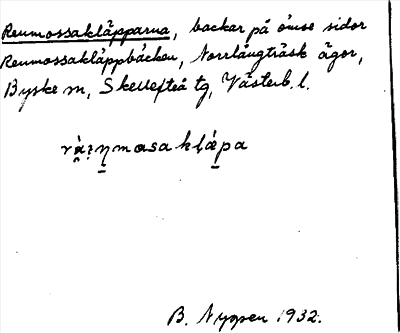 Renmossakläpparna, backar på ömse sidor
Renmossakläppbäcken, Norrlångträsk ägor,
Byske sn, Skellefteå tg, Västerb. l.
B. Nygren 1932.